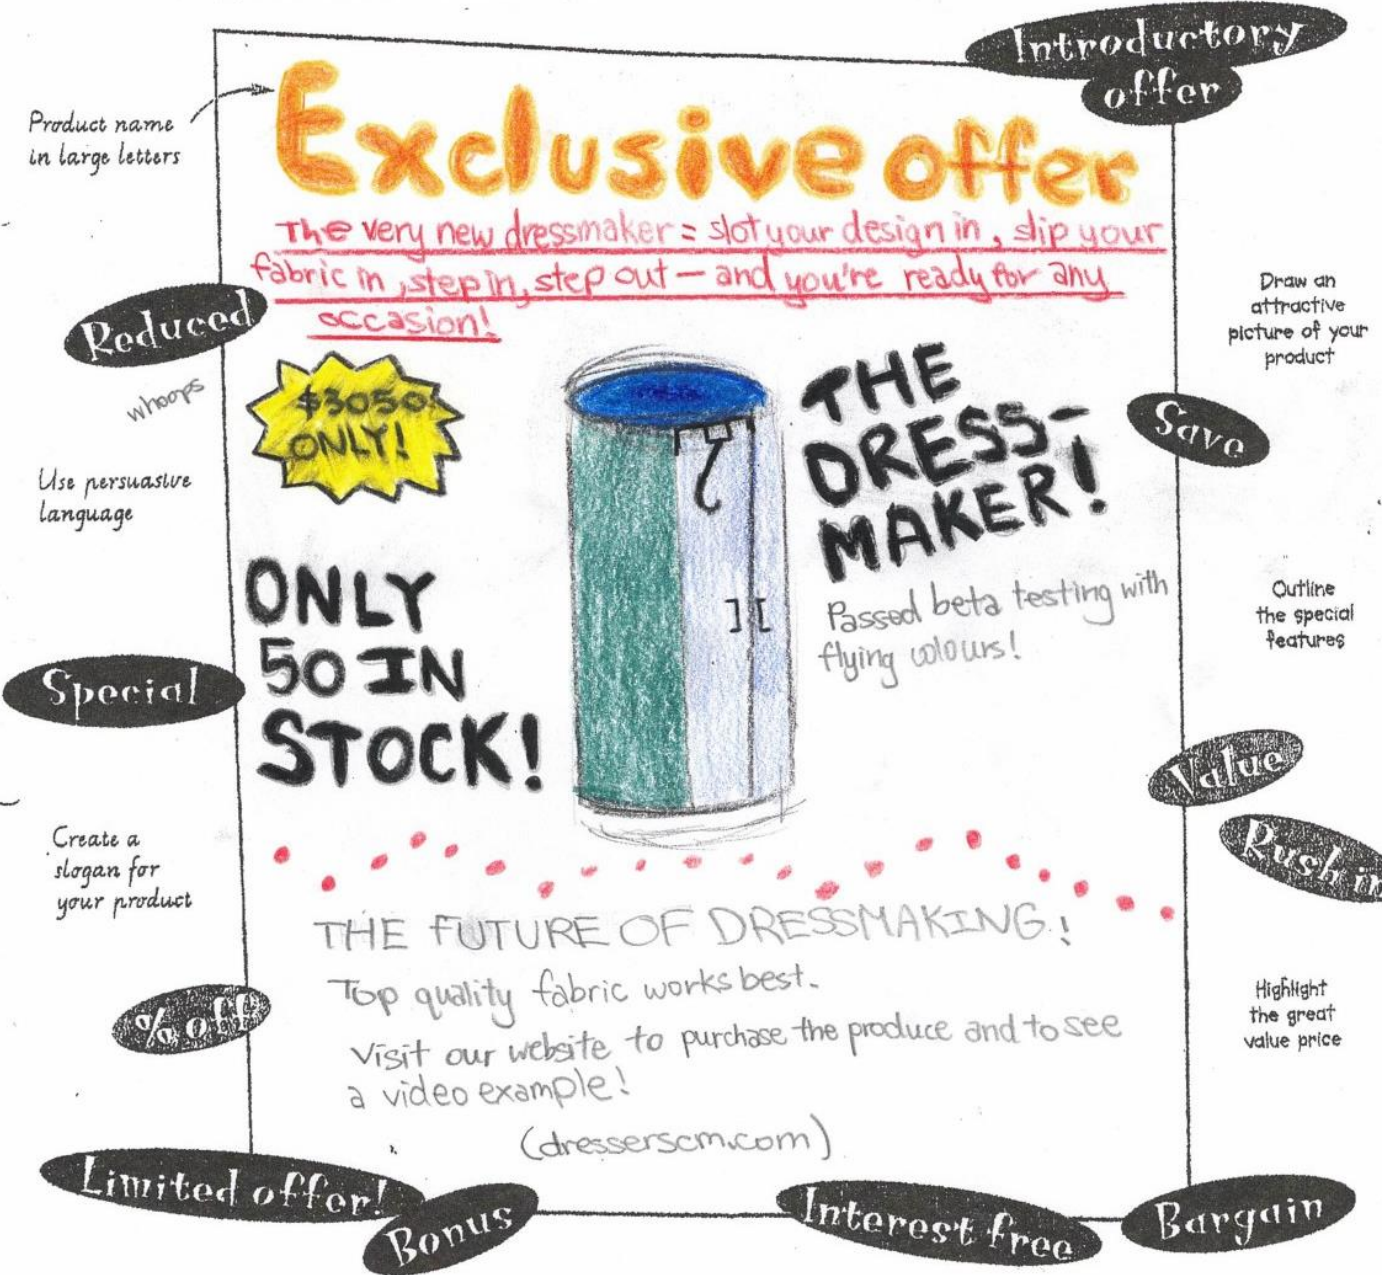 Introductory
offer
Product name
in large letters
Exclusive offer
The very new dressmaker = slot your design in, slip your
fabric in, step in, step out — and you're ready for any
occasion!
Reduced
whoops
Draw an
attractive
picture of your
product
$3050
ONLY!
THE
DRESS-
MAKER!
Save
Use persuasive
language
Passed beta testing with
flying colours!
Outline
the special
features
ONLY
50 IN
STOCK!
Special
Value
Rush in
Create a
slogan for
your product
THE FUTURE OF DRESSMAKING!
Top quality fabric works best.
Visit our website to purchase the produce and to see
a video example!
(dresserscm.com)
% off
Highlight
the great
value price
Limited offer!
Bonus
Interest free
Bargain